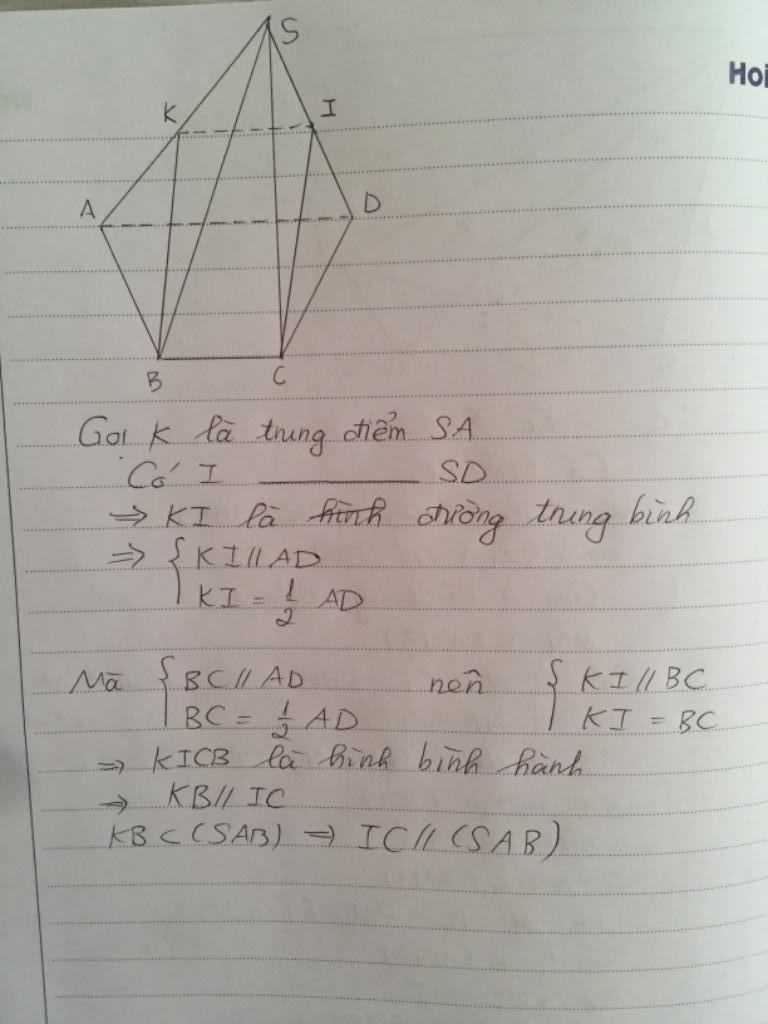 S
Hoi
K
I
A
D
B
C
Gọi K là trung điểm SA
Có I ———— SD
⇒ KI là hình đường trung bình
⇒ { KI // AD
KI = 1/2 AD
Mà { BC // AD nên { KI // BC
BC = 1/2 AD KI = BC
⇒ KICB là hình bình hành
⇒ KB // IC
KB ⊂ (SAB) ⇒ IC // (SAB)